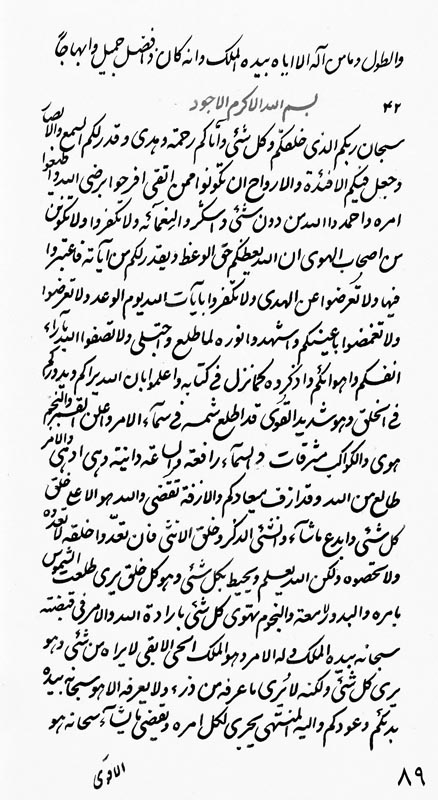 والطول وما من آله الا اياه بيده الملك وانه كان ذا فضل جميل وابهاجا
٤٢
بسم الله الاكرم الاجود
سبحان ربكم الذى خلقكم وكل شئ وآتاكم رحمة وهدى وقدر لكم السمع والابصار
وجعل فيكم الافئدة والارواح ان تكونوا ممن اتقى افرحوا برضى الله واطيعوا
امره واحمدوا الله من دون شئ واشكروا لنعمائه ولا تكفروا ولا تكونن
من اصحاب الهوى ان الله يعظكم حق الوعظ ويقدر لكم من آياته فاعتبروا
فيها ولا تعرضوا عن الهدى ولا تكفروا بايات الله يوم الوعد ولا تعرضوا
ولا تغمضوا باعينكم واشهدوا نوره لما طلع واجتلى ولا تصفوا الله بآراء
انفسكم واهوائكم واذكروه كما نزل فى كتابه واعلموا بان الله يراكم ويدرككم
فى الخلق وهو شديد القوى قد اطلع شمسه فى سماء الامر واعلن القمر والنجم
هوى والكواكب مشرقات والسماء رافعة والساعة دانية وهى ادهى والامر
طالع من الله وقد ازف ميعادكم والازفة تقضى والله هو الاعلى خلق
كل شئ وابدع ما شاء وانشئ الذكر وخلق الانثى فان تعدوا خلقه لا تعدوه
ولا تحصوه ولكن الله يعلم ويحيط بكل شئ وهو كل خلق يرى طلعت الشموس
بامره والبدور لامعة والنجوم تهوى كل شئ بارادة الله والامر فى قبضته
سبحانه بيده الملك وله الامر وهو الملك الحى الابقى لا يراه من شئ وهو
يرى كل شئ ولكنه لا يرى ما عرفه من ذرء ولا يعرفه الا هو سبحانه بيده
بدئكم وعودكم واليه المنتهى يجرى لكل امره ويقضى ما يشاء سبحانه هو
الاقوى
٨٩